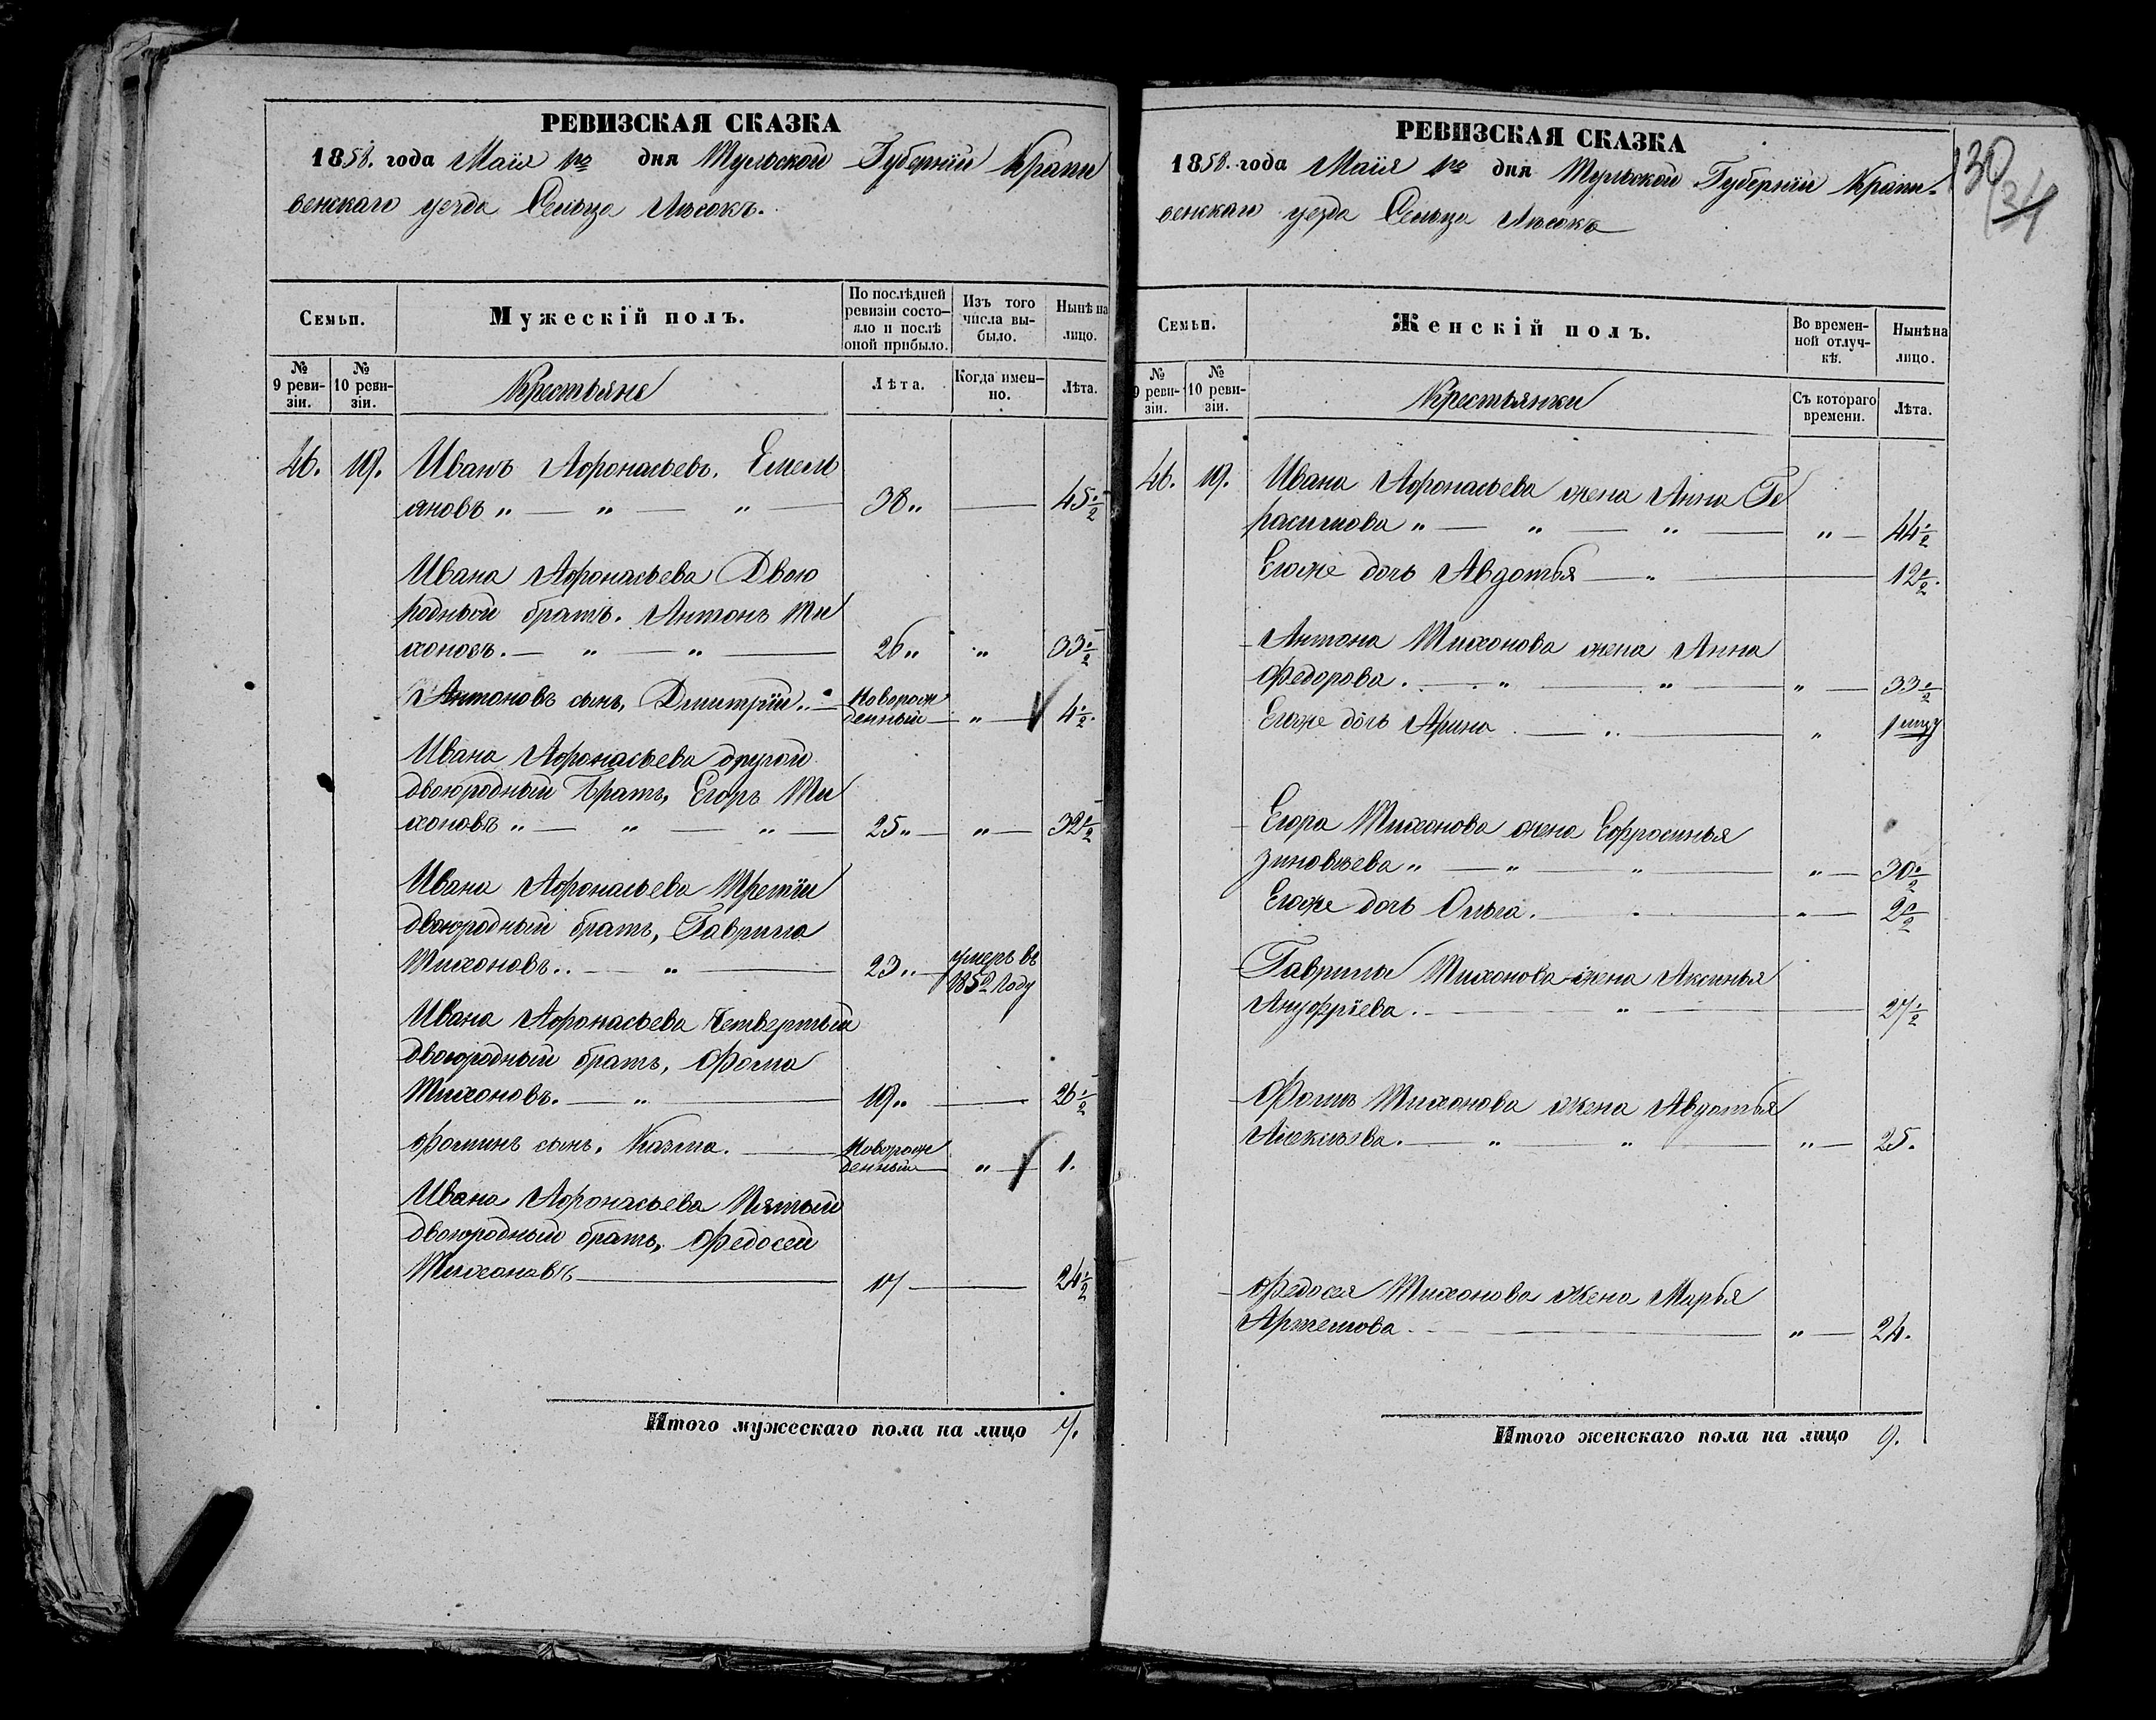 РЕВИЗСКАЯ СКАЗКА
1858. года Маія 1го дня Тульской Губерніи Крапи
венскаго уезда Сельца Лѣсокъ.
Семьи.
Мужескій полъ.
По послѣдней
ревизіи состо-
яло и послѣ
оной прибыло.
Изъ того
числа вы-
было.
Нынѣ на
лицо.
№
9 реви-
зіи.
№
10 реви-
зіи.
Крестьяне
Лѣта.
Когда имен-
но.
Лѣта.
46. 19. Иванъ Афонасьевъ. Емель
яновъ „ — „ — „ — 38„ — 45 1/2
Ивана Афонасьева Двою
родный братъ. Антонъ Ти
хоновъ. — „ — „ — 26„ „ 33 1/2
Антоновъ сынъ, Дмитрій. — Новорож
денный — „ — 4 1/2.
Ивана Афонасьева другой
двоюродный Братъ, Егоръ Ти
хоновъ „ — „ — „ — 25„ — „ — 32 1/2
Ивана Афонасьева Третій
двоюродный братъ, Гаврила
Тихоновъ.. — „ — 23„ — умеръ въ
185 Году
Ивана Афонасьева Четвертый
двоюродный братъ, Фома
Тихоновъ. — „ — 19„ — 26 1/2
Фоминъ сынъ. Козма. — Новорож
денный — „ — 1.
Ивана Афонасьева Пятый
двоюродный братъ, Федосей
Тихоновъ — 17 — 24 1/2
Итого мужескаго пола на лицо 7.
РЕВИЗСКАЯ СКАЗКА
1858. года Маія 1го дня Тульской Губерніи Крапи-
венскаго уезда Сельца Лѣсокъ
130
34
Семьи.
Женскій полъ.
Во времен-
ной отлуч-
кѣ.
Нынѣ на
лицо.
№
9 реви-
зіи.
№
10 реви-
зіи.
Крестьянки
Съ котораго
времени.
Лѣта.
46. 19. Ивана Афонасьева жена Анна Ге
расимова „ — „ — „ — „ — 44 1/2
Егоже дочь Авдотья — „ — 12 1/2.
Антона Тихонова жена Анна
Федорова. — „ — „ — „ — 33 1/2
Егоже дочь Арина — „ — „ 1
Егора Тихонова жена Ефросинья
Зиновьева „ — „ — „ — „ — 30 1/2
Егоже дочь Ольга. — „ — 2 1/2
Гаврилы Тихонова жена Аксинья
Ануфріева. — „ — 27 1/2
Фомы Тихонова жена Авдотья
Алексѣева. — „ — „ — „ — 25.
Федосея Тихонова жена Марья
Артемова — „ — 24.
Итого женскаго пола на лицо 9.